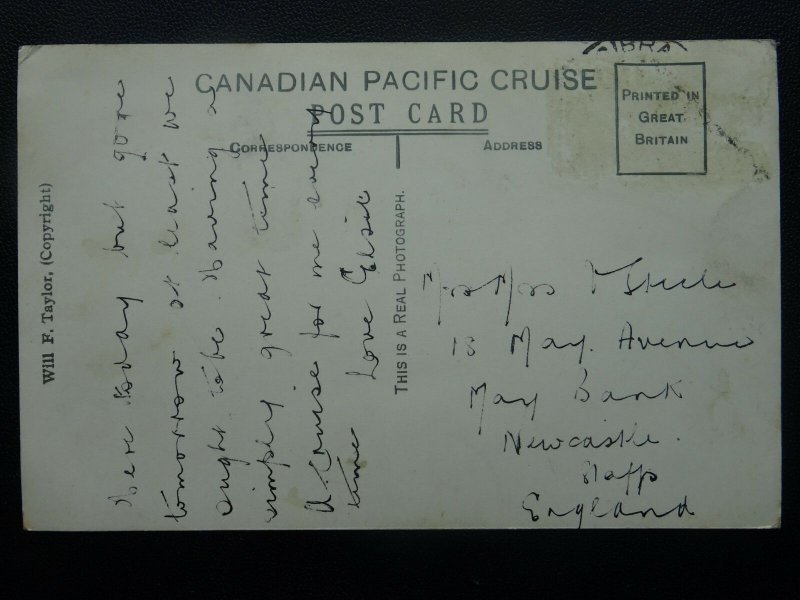 IBRA
CANADIAN PACIFIC CRUISE
POST CARD
CORRESPONDENCE
ADDRESS
PRINTED IN
GREAT
BRITAIN
Will F. Taylor, (Copyright)
THIS IS A REAL PHOTOGRAPH.
Here today but gone
tomorrow at least we
ought to be. Having a
simply great time
A Cruise for me every
time
Love Elsie
Steele
18 May. Avenue
May Bank
Newcastle.
Staffs
England